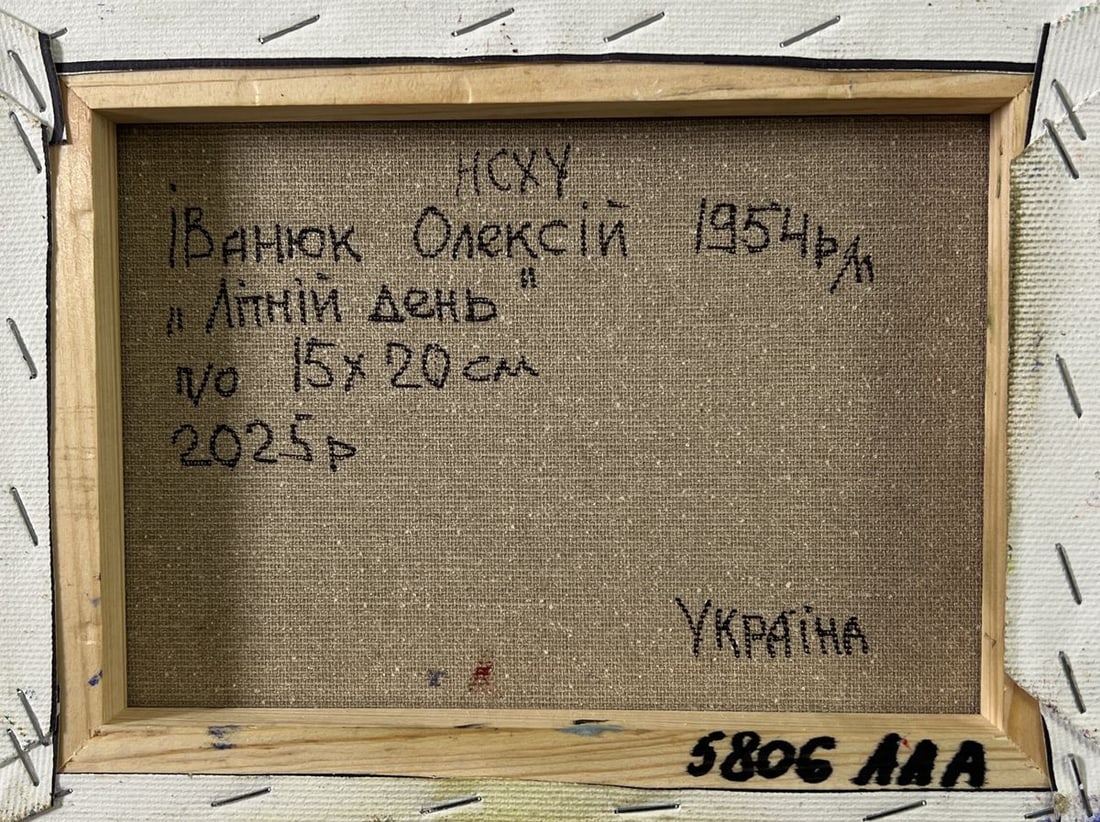 НСХУ
Іванюк Олексій 1954р/н
„Літній день"
п/о 15х20см
2025р
Україна
5806 ААА